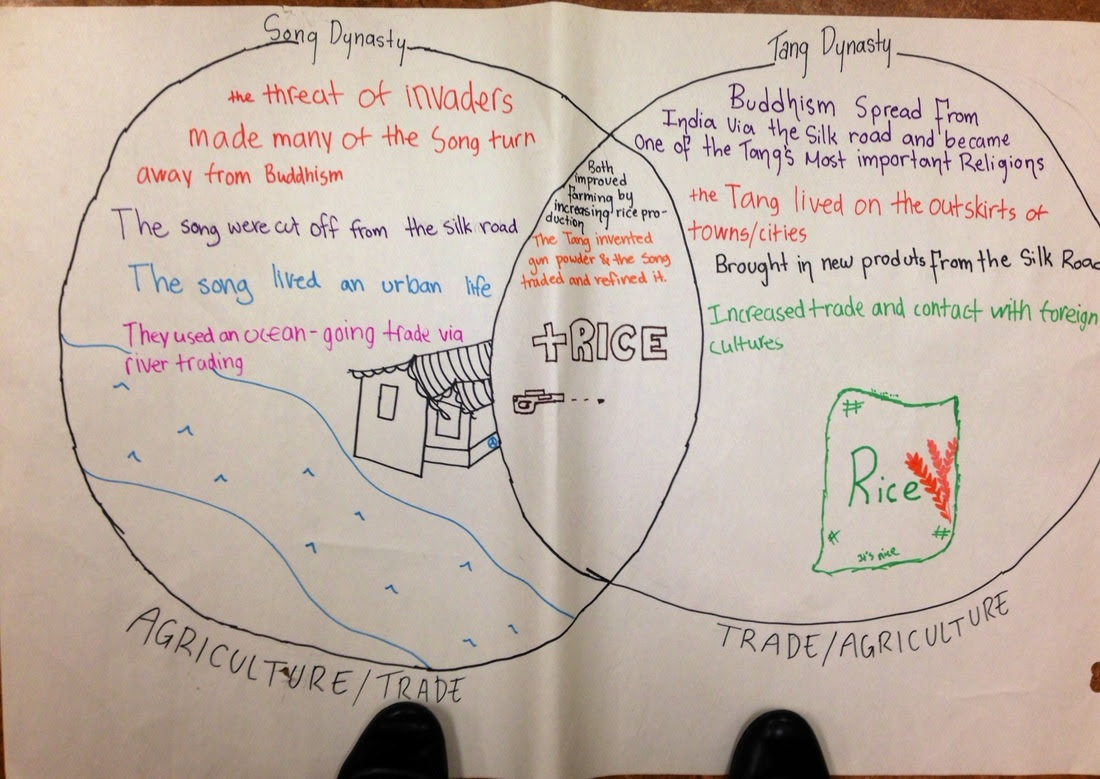 Song Dynasty
the threat of invaders
made many of the Song turn
away from Buddhism
The song were cut off from the silk road
The song lived an urban life
They used an ocean-going trade via
river trading
AGRICULTURE/TRADE
Both
improved
farming by
increasing rice pro-
duction
The Tang invented
gun powder & the song
traded and refined it.
+RICE
Tang Dynasty
Buddhism Spread from
India via the Silk road and became
one of the Tang's Most important Religions
the Tang lived on the outskirts of
towns/cities
Brought in new produts from the Silk Road
Increased trade and contact with foreign
cultures
Rice
TRADE/AGRICULTURE